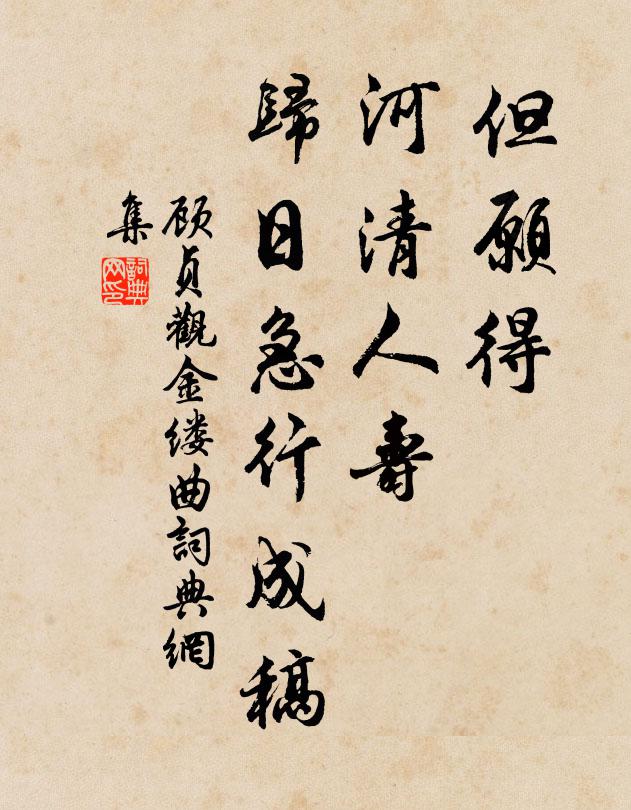 但願得
河清人壽
歸日急行成稿
顾貞觀金缕曲詞典網
集
詞典网印